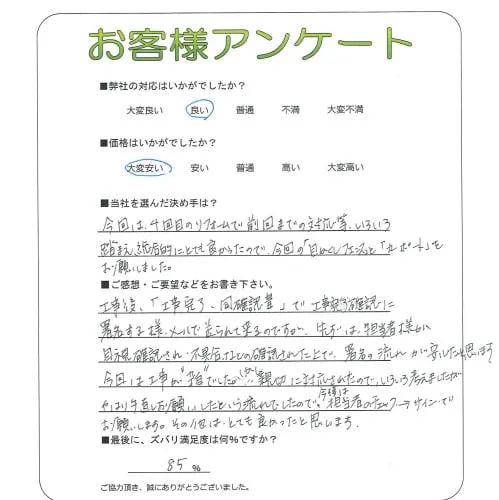 お客様アンケート
■弊社の対応はいかがでしたか？
大変良い 良い 普通 不満 大変不満
■価格はいかがでしたか？
大変安い 安い 普通 高い 大変高い
■当社を選んだ決め手は？
今回は、4回目のリフォームで前回までの対応等、いろいろ
踏まえ、総合的にとても良かったので、今回の「目かくしフェンス」と「カーポート」を
お願いしました。
■ご感想・ご要望などをお書き下さい。
工事後、「工事完了、同確認書」で工事完了確認に
署名する様、メールで送られて来るのですが、先ずは、担当者様が
目視確認され、不具合などの確認された上で、署名の流れが宜しいと思います。
今回は工事が"雑"でしたが、親切に対応されたので、いろいろ考えましたが
やはり手直しお願いしたという流れでしたので、今後は担当者のチェック→サインで
お願いします。その他は、とても良かったと思います。
■最後に、ズバリ満足度は何％ですか？
85 ％
ご協力頂き、誠にありがとうございました。